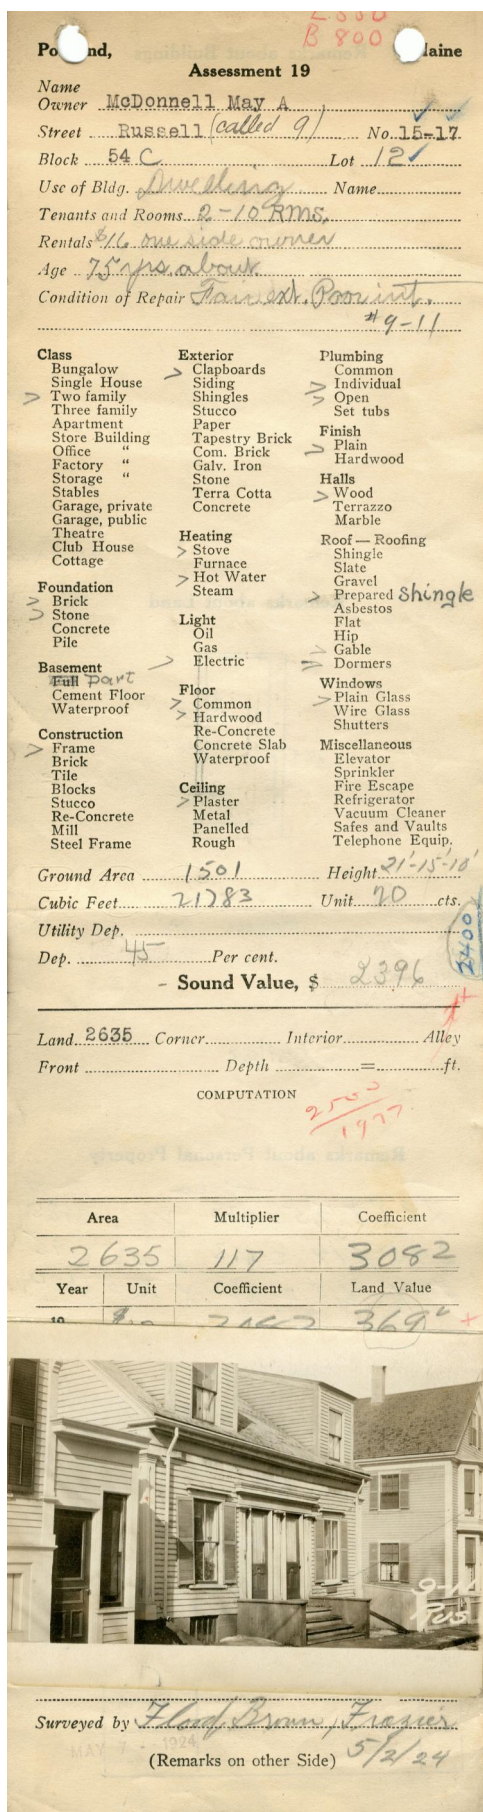 B 800
Portland, Maine
Assessment 19
Name
Owner McDonnell May A
Street Russell (called 9) No. 15-17
Block 54 C Lot 12
Use of Bldg. Dwelling Name
Tenants and Rooms 2-10 Rms.
Rentals $16 one side owner
Age 75 yrs about
Condition of Repair Fair ext. Poor int.
#9-11
Class
Bungalow
Single House
Two family
Three family
Apartment
Store Building
Office "
Factory "
Storage "
Stables
Garage, private
Garage, public
Theatre
Club House
Cottage
Foundation
Brick
Stone
Concrete
Pile
Basement
Full part
Cement Floor
Waterproof
Construction
Frame
Brick
Tile
Blocks
Stucco
Re-Concrete
Mill
Steel Frame
Exterior
Clapboards
Siding
Shingles
Stucco
Paper
Tapestry Brick
Com. Brick
Galv. Iron
Stone
Terra Cotta
Concrete
Heating
Stove
Furnace
Hot Water
Steam
Light
Oil
Gas
Electric
Floor
Common
Hardwood
Re-Concrete
Concrete Slab
Waterproof
Ceiling
Plaster
Metal
Panelled
Rough
Plumbing
Common
Individual
Open
Set tubs
Finish
Plain
Hardwood
Halls
Wood
Terrazzo
Marble
Roof — Roofing
Shingle
Slate
Gravel
Prepared Shingle
Asbestos
Flat
Hip
Gable
Dormers
Windows
Plain Glass
Wire Glass
Shutters
Miscellaneous
Elevator
Sprinkler
Fire Escape
Refrigerator
Vacuum Cleaner
Safes and Vaults
Telephone Equip.
Ground Area 1501 Height 21'-15'-10'
Cubic Feet 21783 Unit 20 cts.
Utility Dep.
Dep. 45 Per cent.
2400
Sound Value, $ 2396
Land 2635 Corner Interior Alley
Front Depth = ft.
COMPUTATION
2500
1977
Area Multiplier Coefficient
2635 117 3082
Year Unit Coefficient Land Value
19
9-11
Rus
Surveyed by Flood, Brown, Frasier
MAY 7 - 1924
(Remarks on other Side) 5/2/24